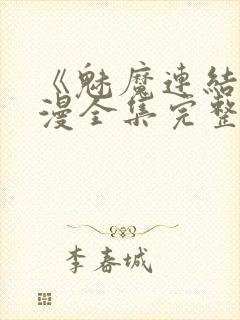 《魅魔連結
漫全集完整
李春城